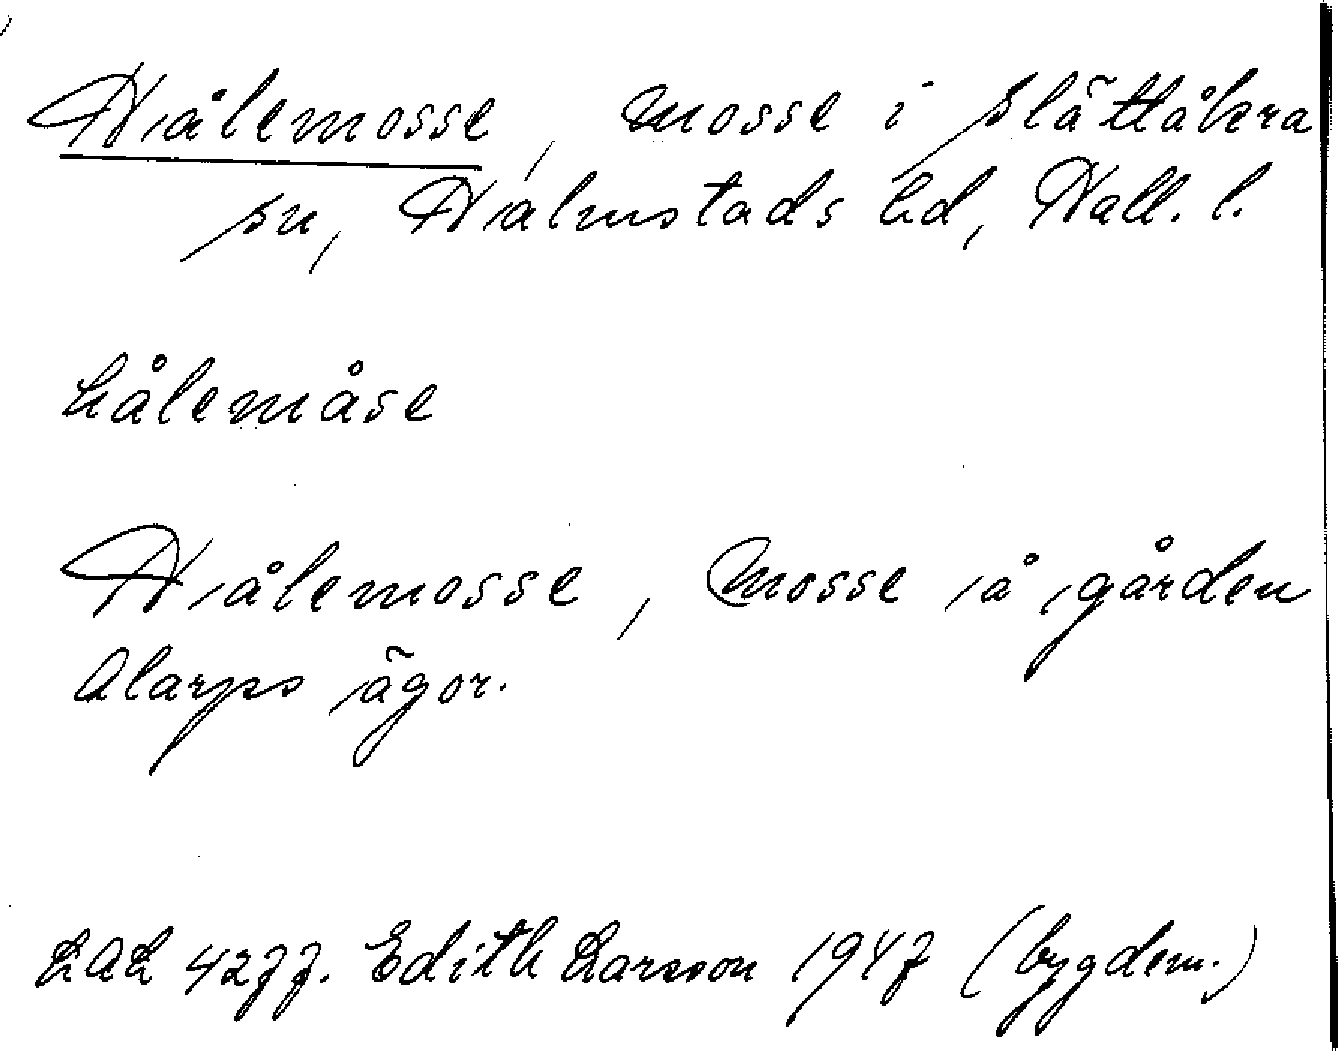 Hålemosse, mosse i Slättåkra
sn, Halmstads hd, Hall. l.
hålemåse
Hålemosse, Mosse å gården
Alarps ägor.
LAL 4277. Edith Larsson 1947 (bygdem.)